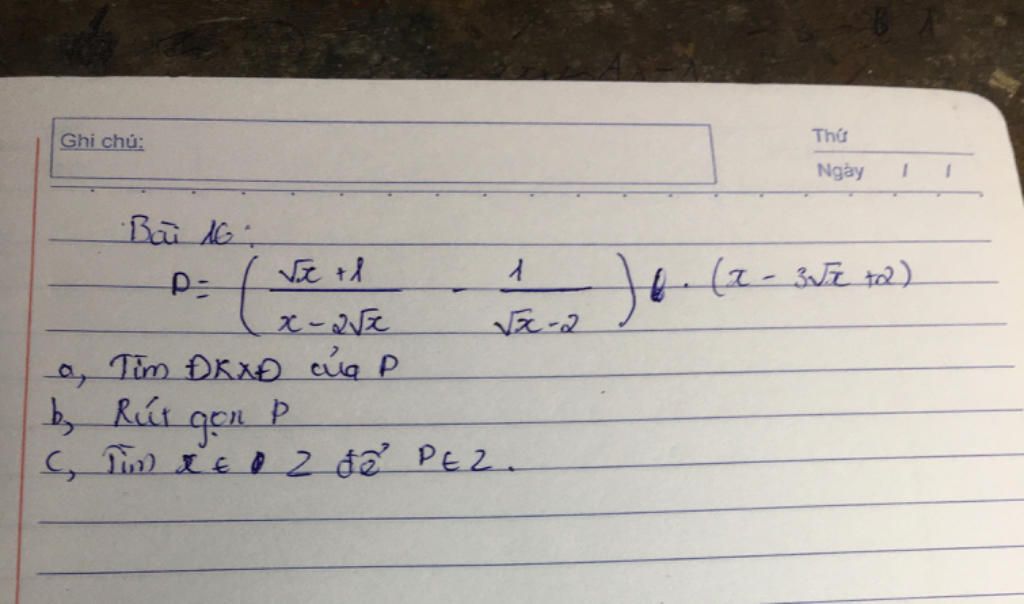 Ghi chú:
Thứ
Ngày / /
Bài 16:
P = ( (√x + 1)/(x - 2√x) - 1/(√x - 2) ) . (x - 3√x + 2)
a, Tìm ĐKXĐ của P
b, Rút gọn P
c, Tìm x ∈ Z để P ∈ Z.